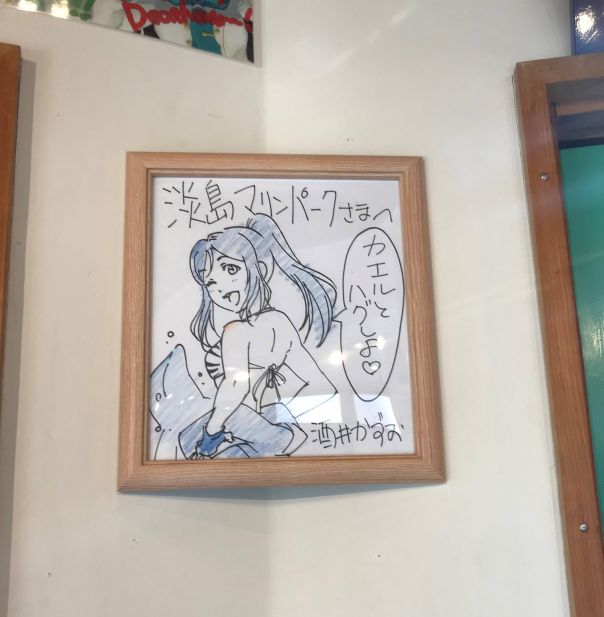 淡島マリンパークさまへ
カエルと
ハグしよ♡
酒井かずお